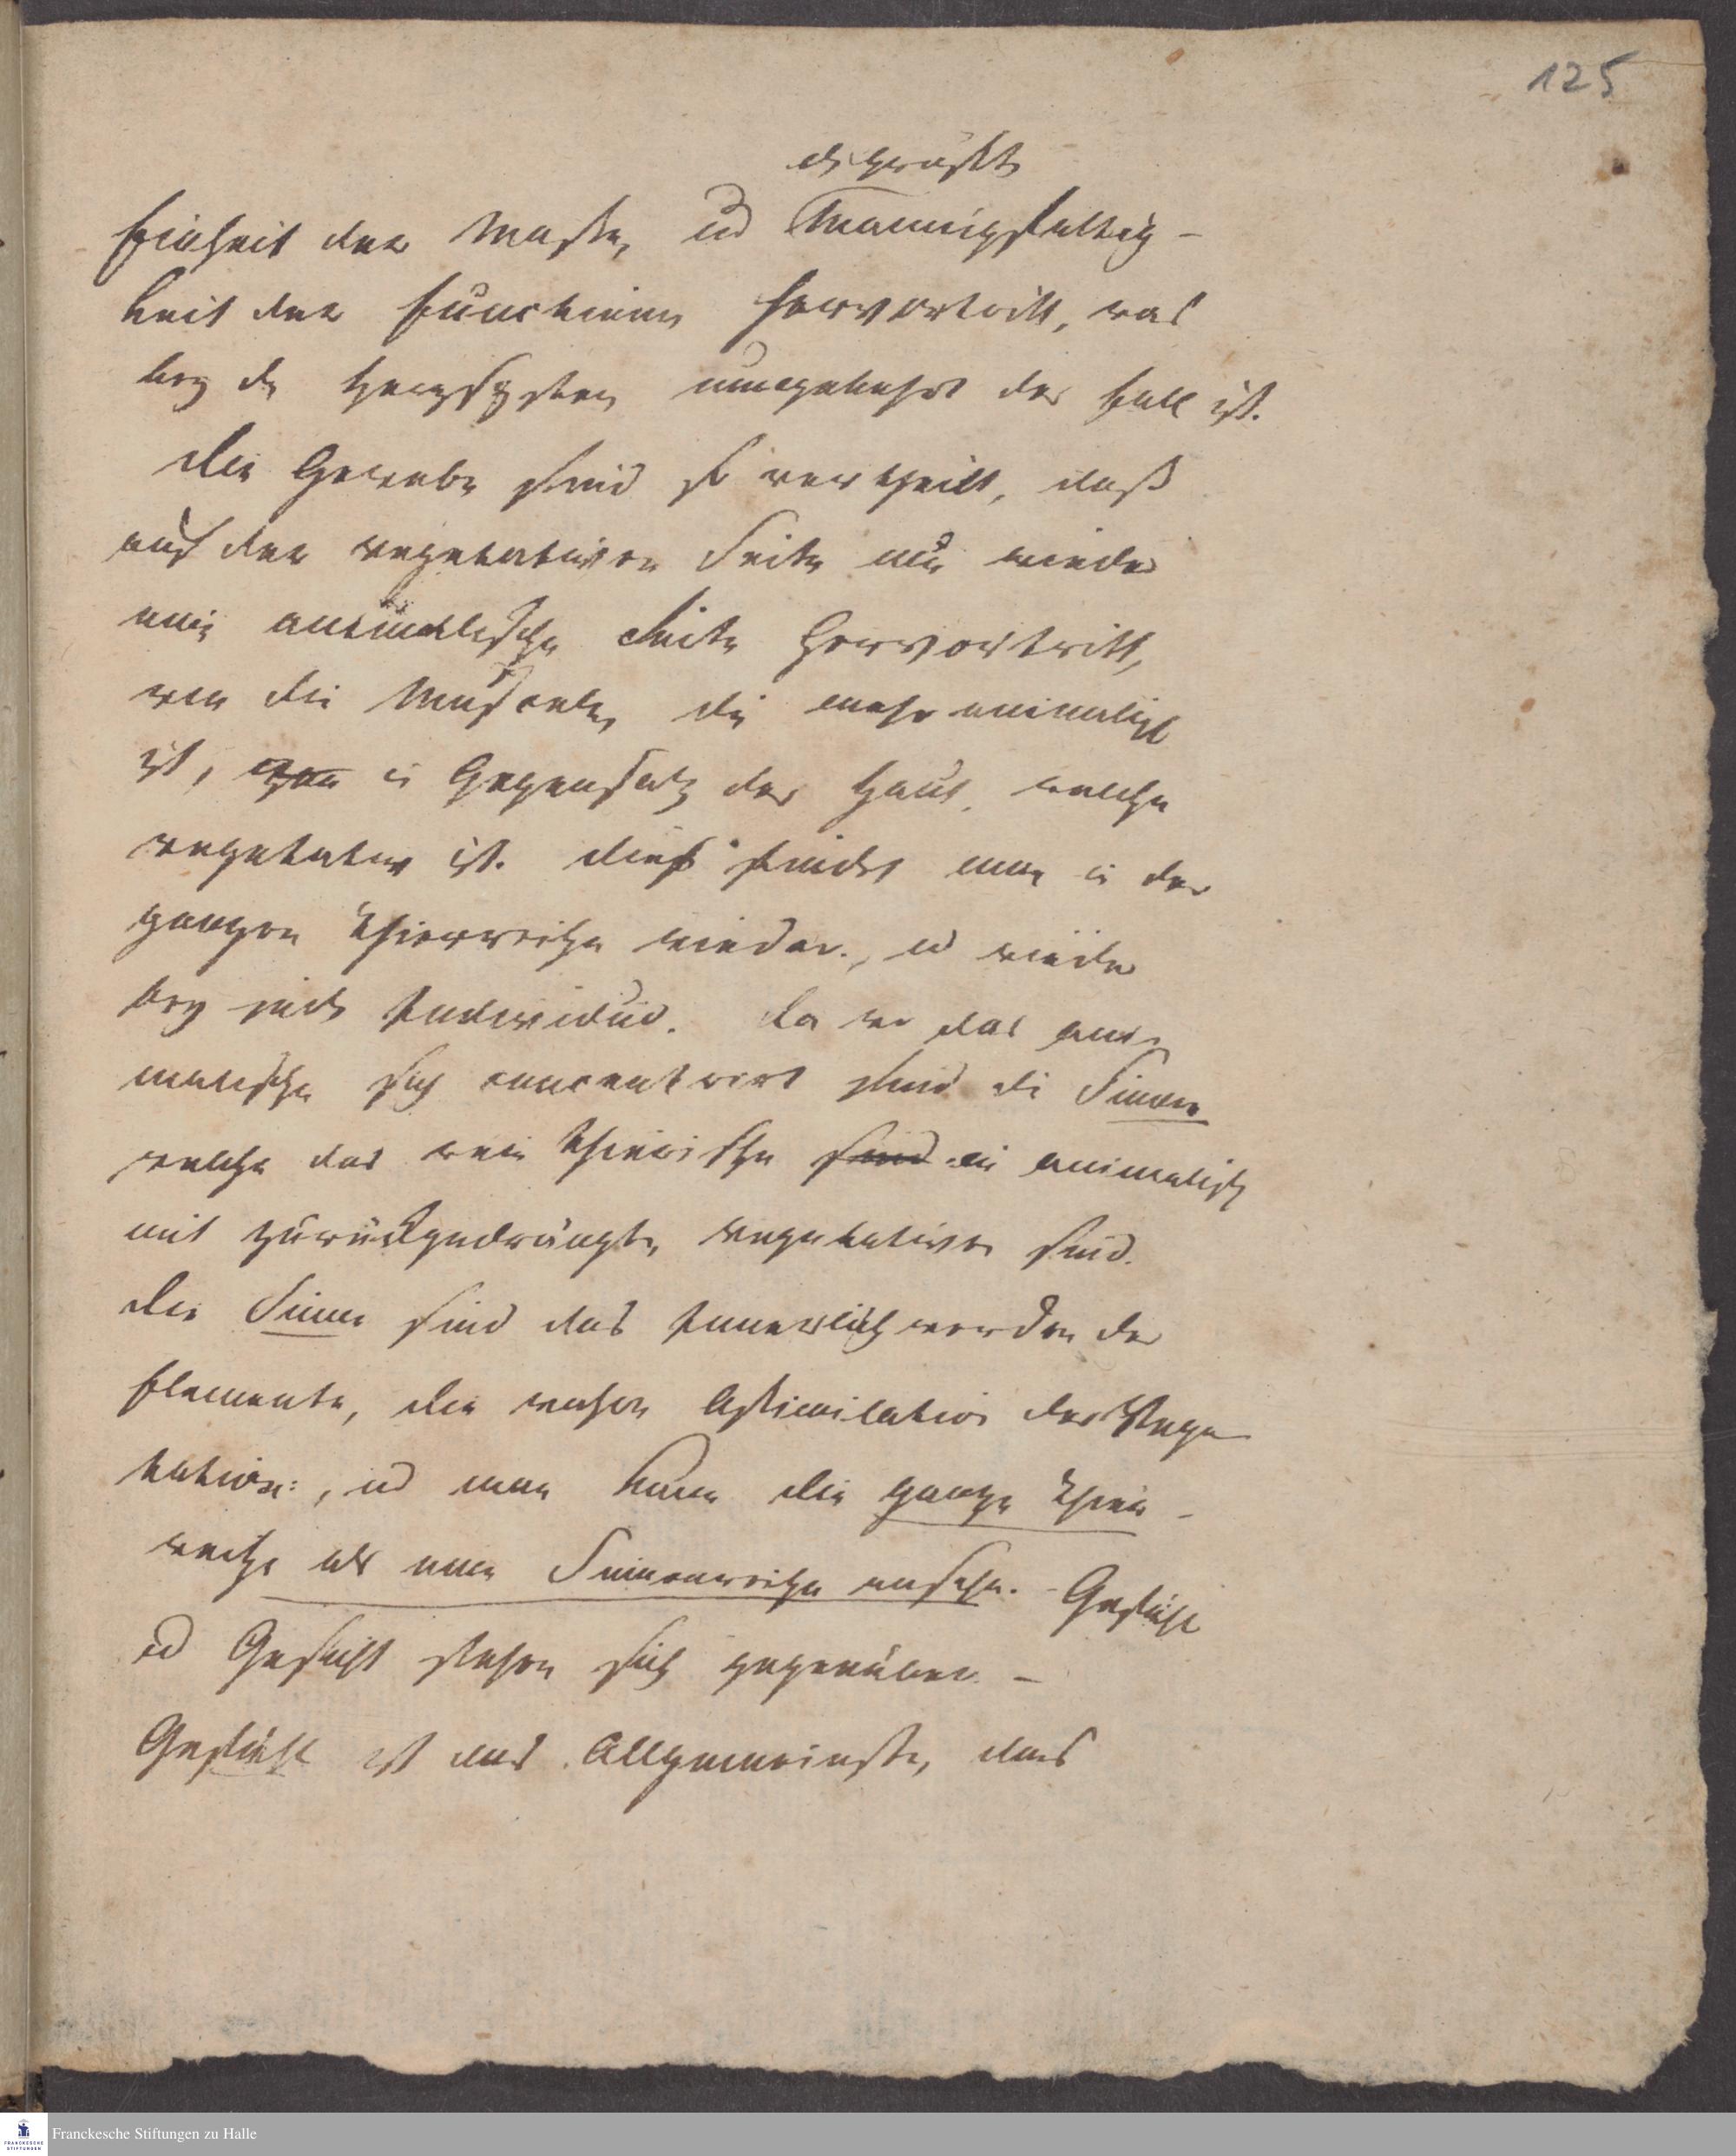 125
die größte
Einheit der Masse, ud Mannigfaltig-
keit der Functionen hervortritt, was
bey dn Hauptsystem umgekehrt der Fall ist.
Die Gewebe sind so vertheilt, daß
auf der vegetativen Seite nur wieder
eine animalische Seite hervortritt,
wie die Muskeln, die mehr animalisch
ist, in Gegensatz der Haut, welche
vegetativ ist. Dieß findet man in der
ganzen Thierreihe wieder, ud wieder
bey jedem Individuo. Da wo das ani-
malische sich concentrirt sind die Sinne
welche das rein thierische sind ein animalisch
mit zurückgedrängten vegetativen sind.
Die Sinne sind das Innerlichwerden der
Elemente, die wahre Assimilation der Vege
tation, ud man kann die ganze Thier-
reihe als eine Sinnenreihe ansehn. - Gefühl
ud Gesicht stehen sich gegenüber. -
Gefühl ist das Allgemeinste, das
Franckesche Stiftungen zu Halle